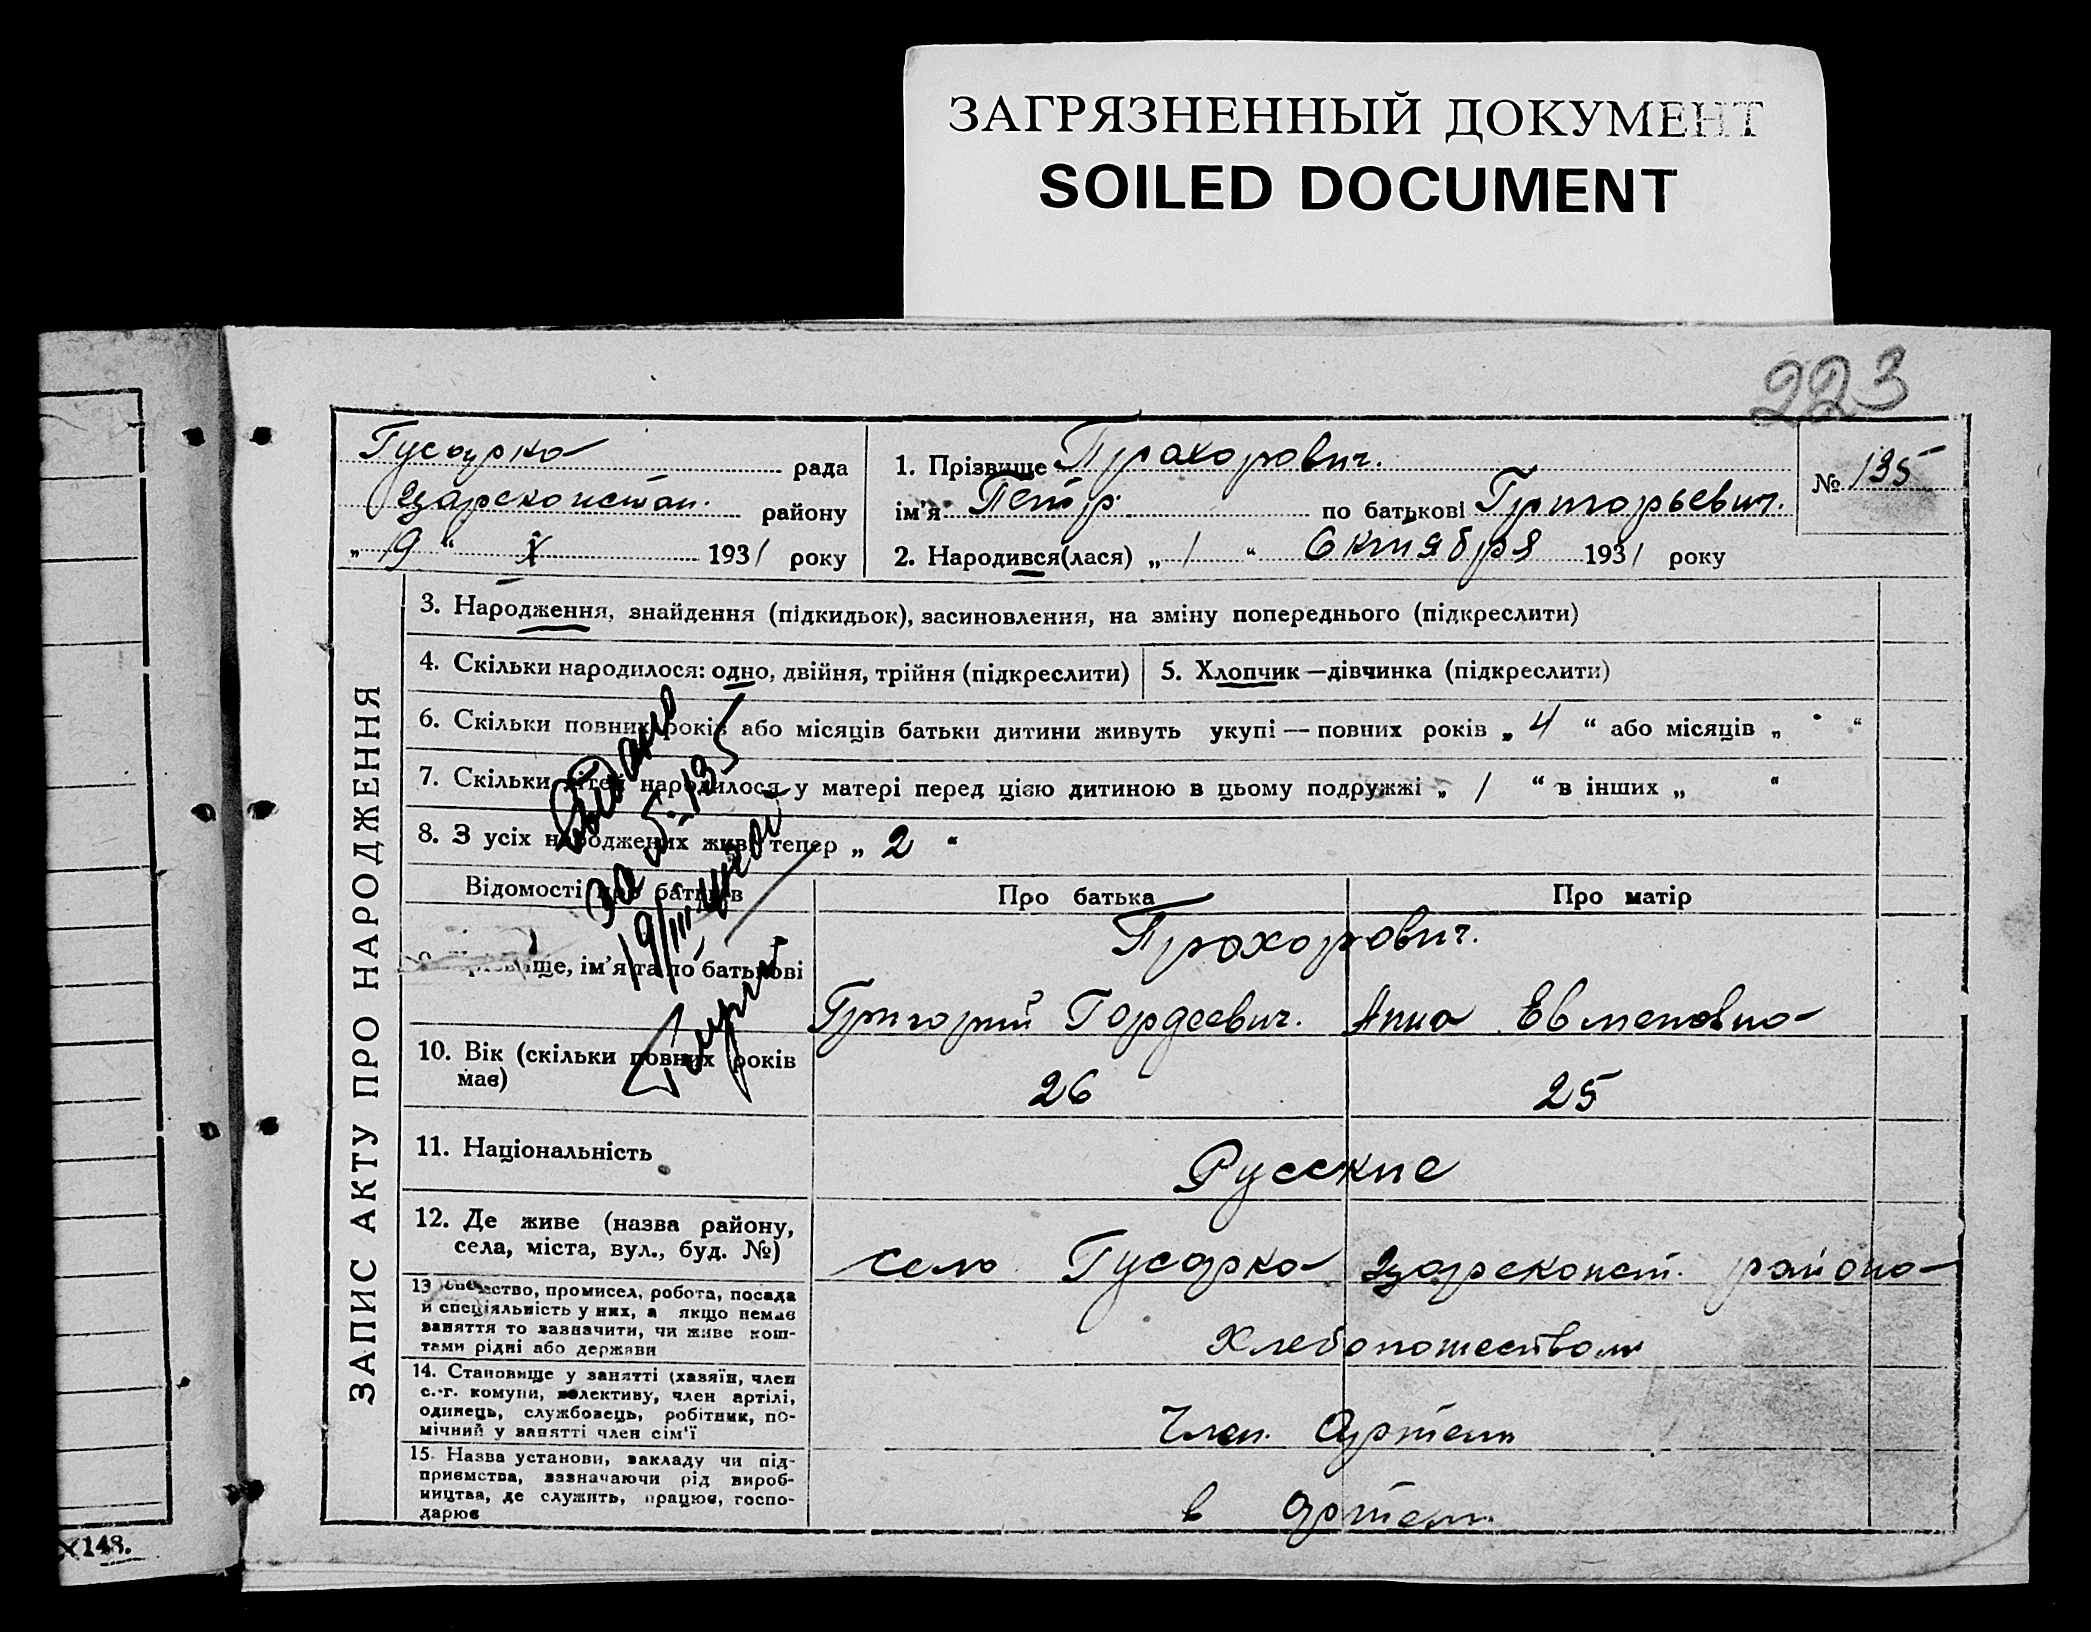 ЗАГРЯЗНЕННЫЙ ДОКУМЕНТ
SOILED DOCUMENT
223
Гусарка рада
Царсконстан. району
„ 9 “ X 1931 року
1. Прізвище Прохорович.
ім'я Петр. по батькові Григорьевич.
2. Народився(лася) „ 1 “ Октября 1931 року
№ 135
ЗАПИС АКТУ ПРО НАРОДЖЕННЯ
3. Народження, знайдення (підкидьок), засиновлення, на зміну попереднього (підкреслити)
4. Скільки народилося: одно, двійня, трійня (підкреслити)
5. Хлопчик—дівчинка (підкреслити)
6. Скільки повних років або місяців батьки дитини живуть укупі — повних років „ 4 “ або місяців „ “
7. Скільки дітей народилося у матері перед цією дитиною в цьому подружжі „ 1 “ в інших „ “
8. З усіх народжених живі тепер „ 2 “
Відомості про батьків
Про батька
Про матір
9. Прізвище, ім'я та по батькові
Прохорович.
Григорий Гордеевич.
Анна Евменовна
10. Вік (скільки повних років
має)
26
25
11. Національність
Русские
12. Де живе (назва району,
села, міста, вул., буд. №)
село Гусарка Царсконст. района
промисел, робота, посада
й спеціяльність у них, а якщо немає
заняття то зазначити, чи живе кош-
тами рідні або держави
Хлебопашеством
14. Становище у занятті (хазяїн, член
с.-г. комуни, колективу, член артілі,
одинець, службовець, робітник, по-
мічний у занятті член сім'ї
Член Артели
15. Назва установи, закладу чи під-
приємства, зазначаючи рід вироб-
ництва, де служить, працює, госпо-
дарює
в артели
19/III
148.